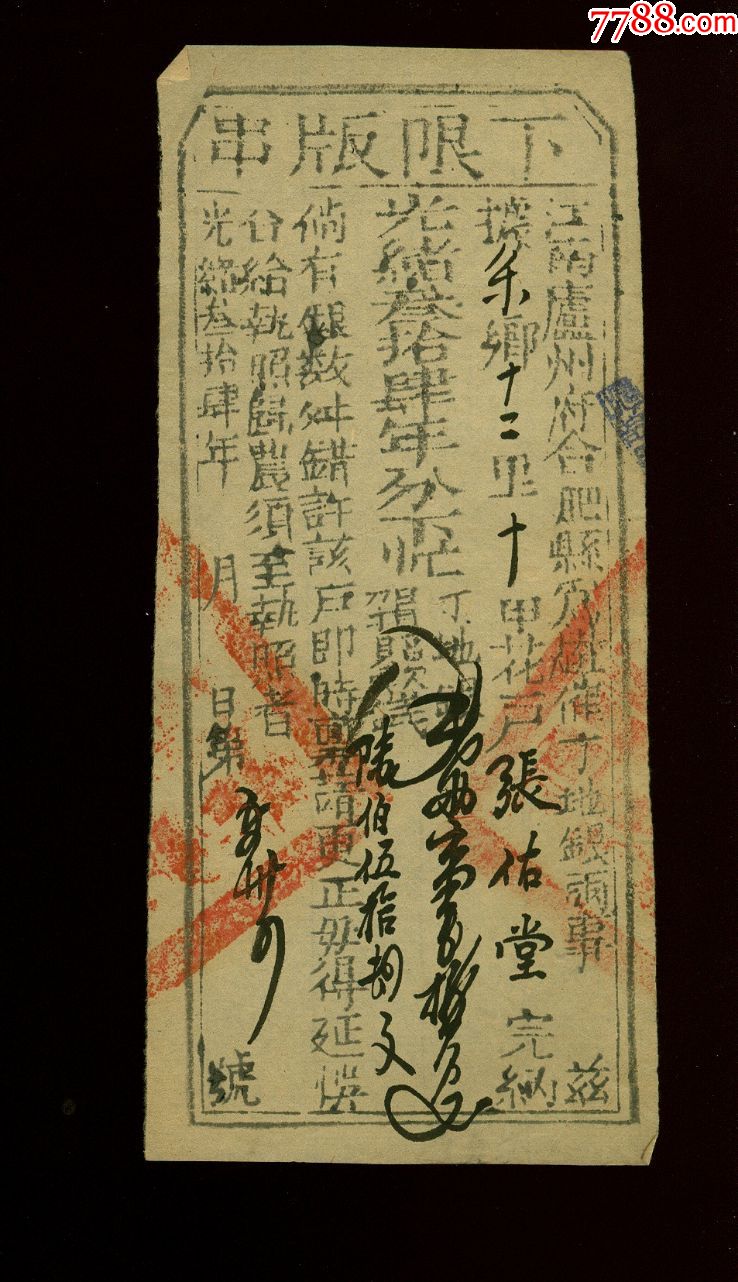 7788.com
下限版串
江南廬州府合肥縣為徵催丁地銀兩事 茲
據 鄉十二里十甲花戶張佑堂完納
光緒叁拾肆年分下忙
丁地銀
捐賠欵錢
陸伯伍拾 文
倘有銀数舛錯許該戶即時稟請更正毋得延悞
合給執照歸農須至執照者
光緒叁拾肆年 月 日第 號